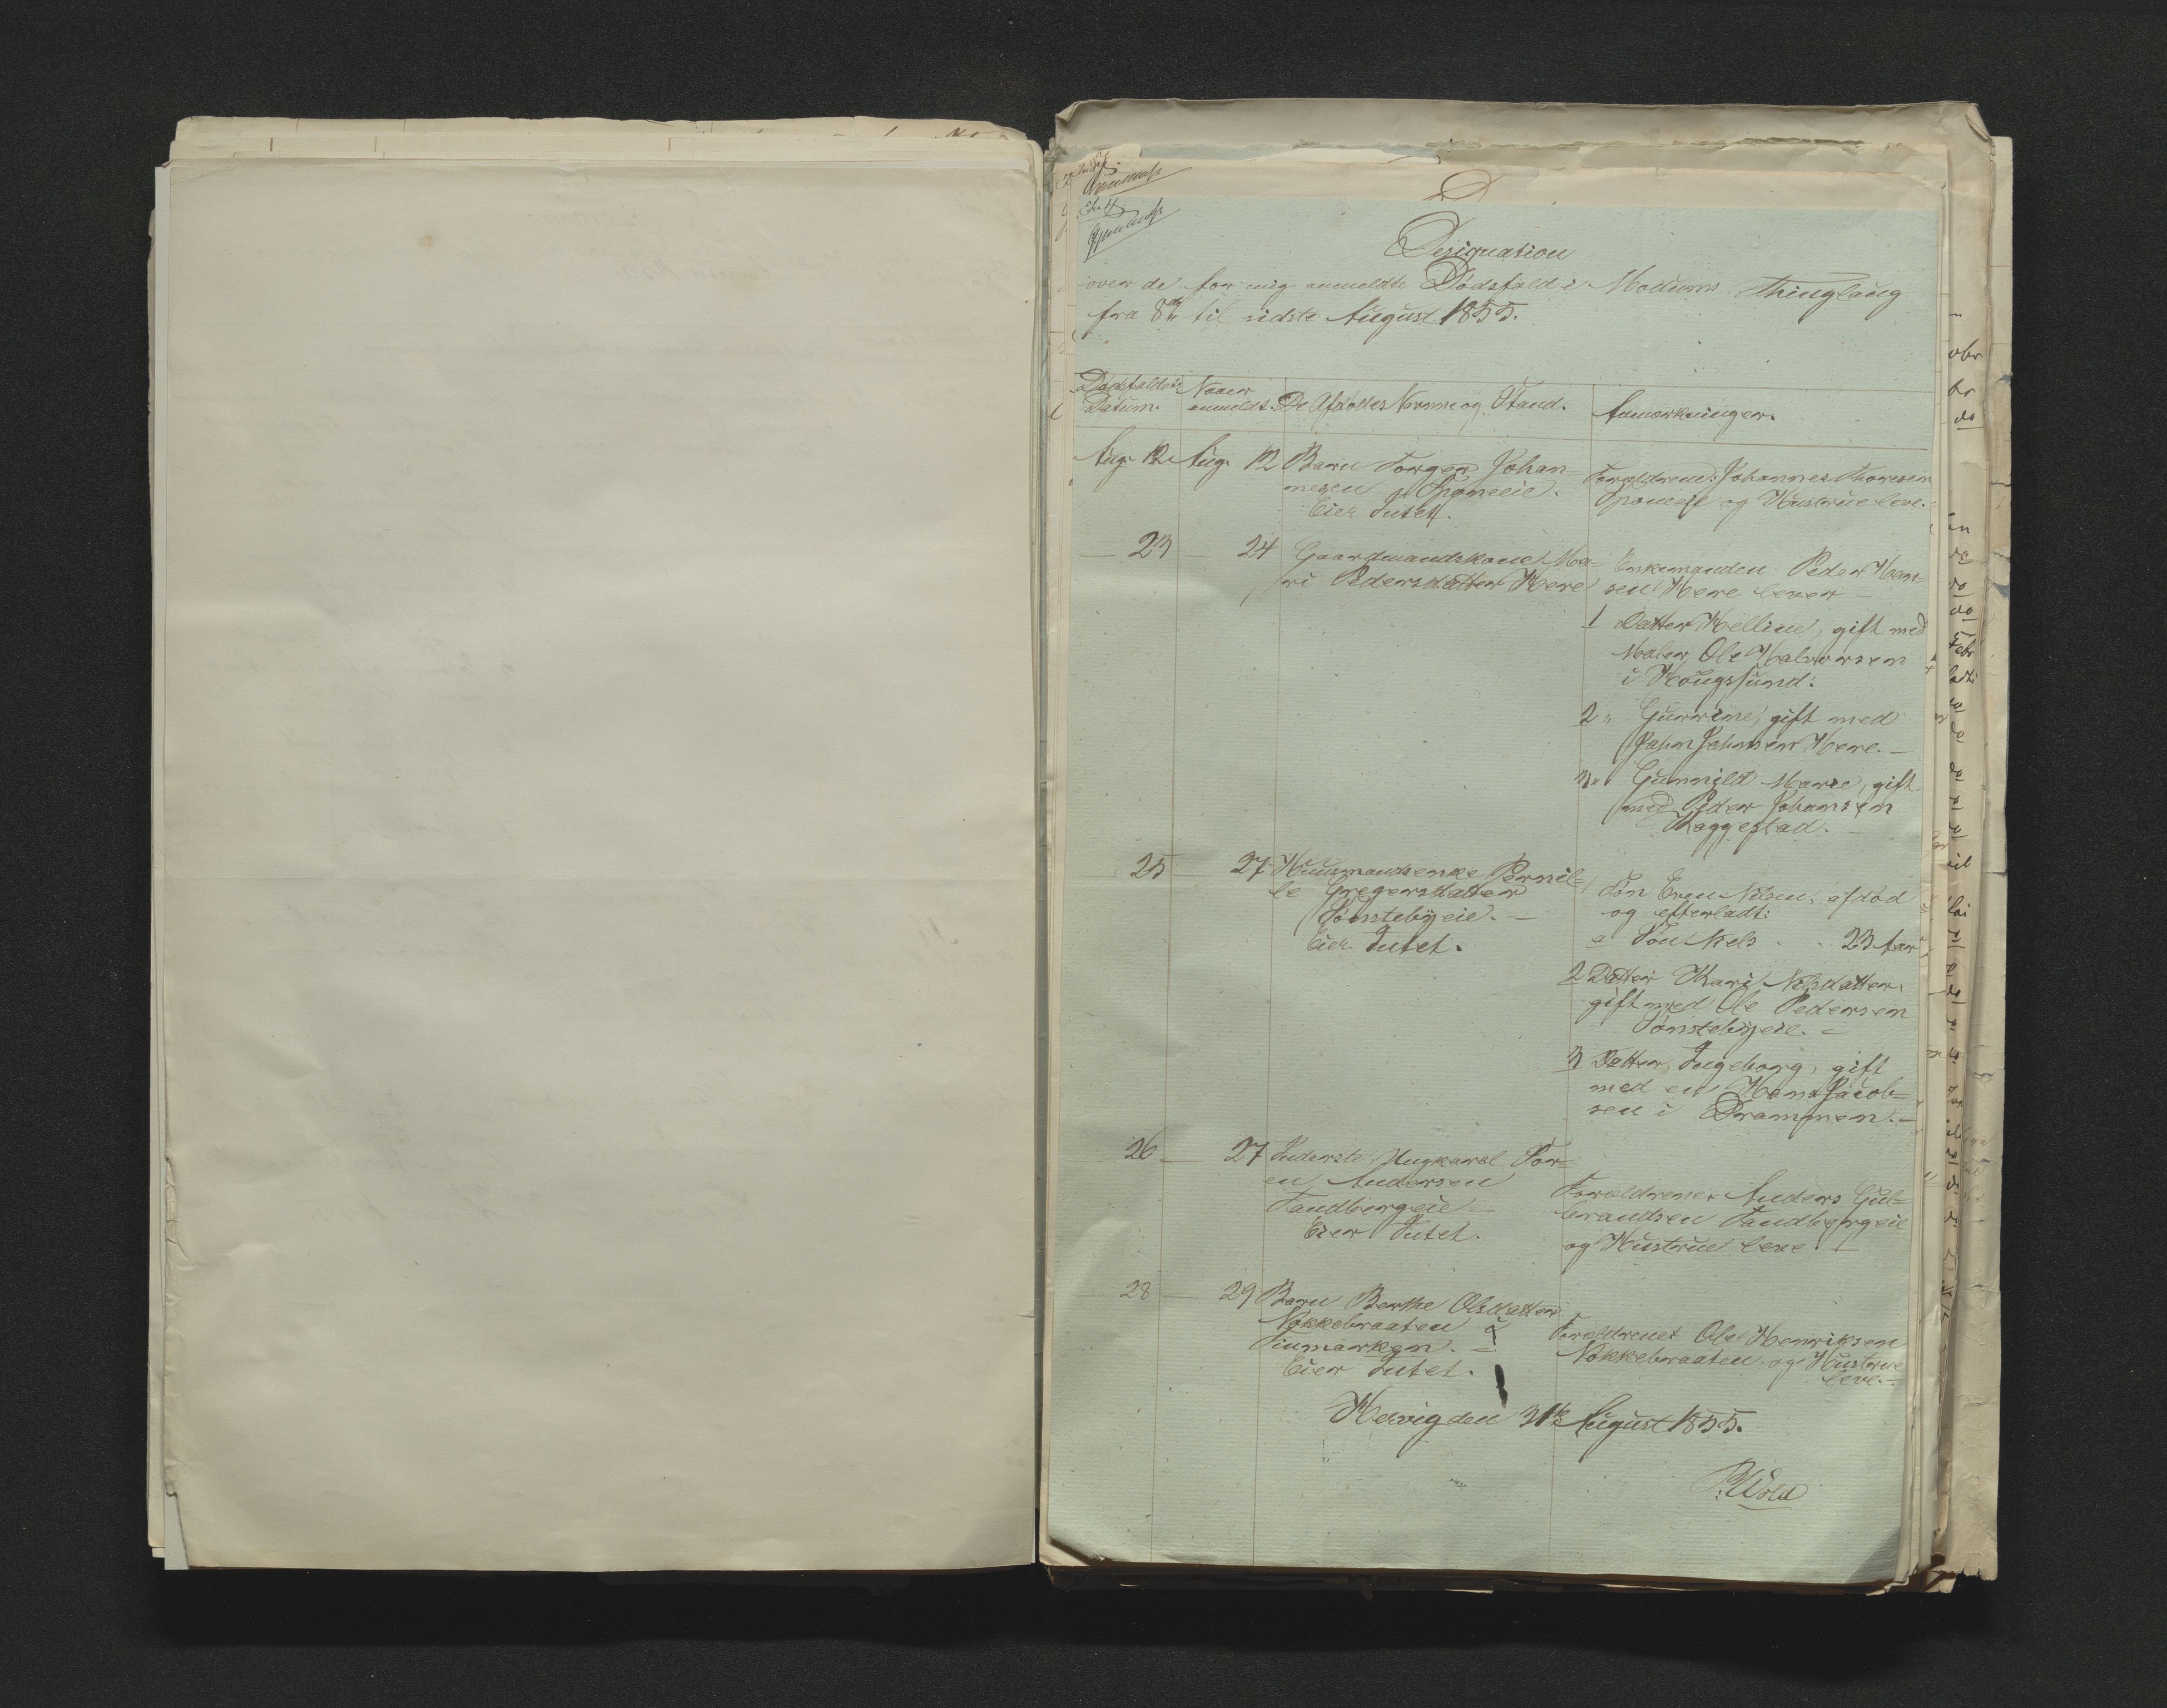 Designation
over de for mig anmeldte Dødsfald i Modums Thinglaug
fra 8de til sidste August 1855.
Dødsfaldets Datum.
Naar anmeldt.
De Afdødes Navne og Stand.
Anmærkninger.
Aug. 12
Aug. 12
Barn Torger Johan-
nesen Sponeeie.
Eier Intet.
Forældrene: Johannes Thoresen
Sponeeie og Hustrue leve.
— 23
— 24
Gaardmandskone Ma-
ri Pedersdatter Here
Enkemanden Peder Han-
sen Here lever —
1 Datter Helline, gift med
Maler Ole Halvorsen
i Hougsund.
2 " Gunrine, gift med
John Johnsen Here. —
3 " Gunnild Marie, gift
med Peder Johansen
Raggestad. —
25 —
27
Huusmandsenke Pernil-
le Gregersdatter
Tønstebyeie. —
Eier Intet.
Søn Even Nilsen, afdød
og efterladt:
a Søn Nels . . 23 Aar
2 Datter Kari Nilsdatter,
gift med Ole Pedersen
Tønstebyeie. —
3 Datter Ingeborg, gift
med en Hans Jacob-
sen i Drammen. —
26 —
27
Inderste, Ungkarl Sør-
en Andersen
Tandbergeie —
Eier Intet.
Forældrene: Anders Gul-
brandsen Tandbergeie
og Hustrue leve —
28 —
29
Barn Berthe Olsdatter
Nokkebraaten i
Finmarken. —
Eier Intet.
Forældrene: Ole Henriksen
Nokkebraaten og Hustrue
leve. —
Hervig den 31te August 1855.
P. Wold